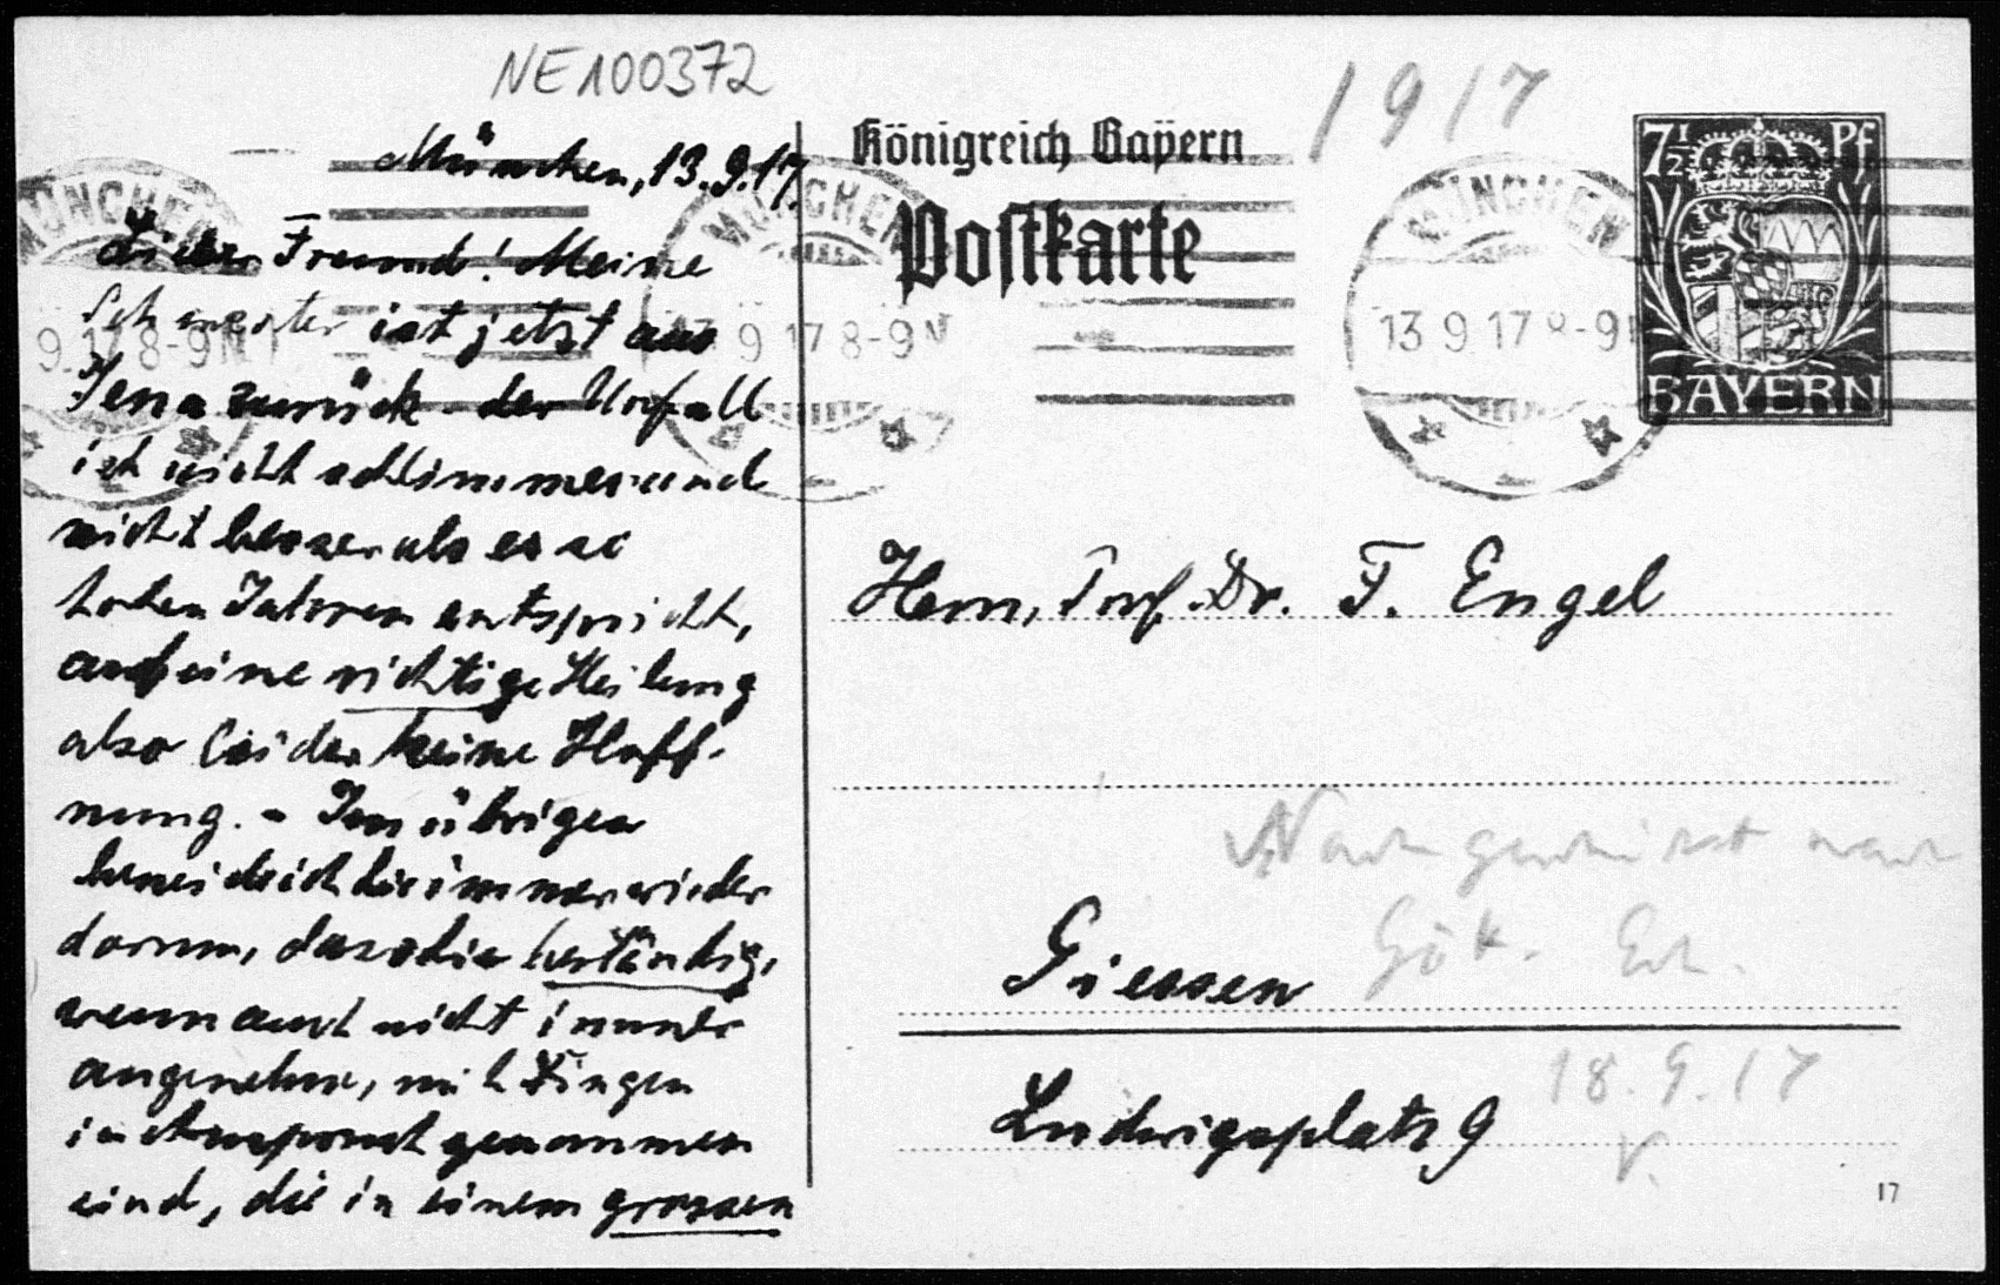 NE100372
München, 13.9.17.
Lieber Freund! Meine
Schwester ist jetzt aus
Jena zurück - der Unfall
ist nicht schlimmer und
nicht besser als es so
hohen Jahren entspricht,
auf eine richtige Heilung
also leider keine Hoff-
nung. - Im übrigen
beneide ich Sie immer wieder
darum, dass Sie beständig,
wenn auch nicht immer
angenehm, mit Dingen
in Anspruch genommen
sind, die in einem grossen
1917
Königreich Bayern
Postkarte
7½ Pf
BAYERN
MÜNCHEN
9.17 8-9 N
MÜNCHEN
13 9 17 8-9 N
MÜNCHEN
13 9 17 8-9 N
Herrn, Prof. Dr. F. Engel
Giessen
Ludwigsplatz 9
18.9.17
17